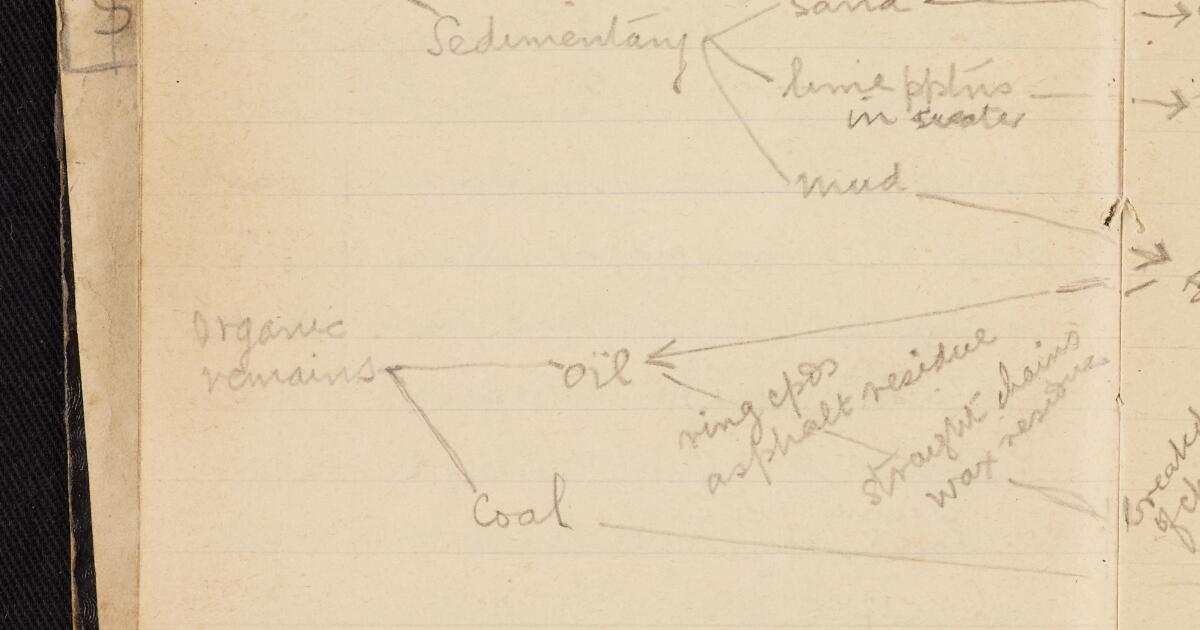 sand
Sedimentary
lime pptns
in water
mud
Organic
remains
oil
ring cpds
asphalt residue
straight chains
wax residue
Coal